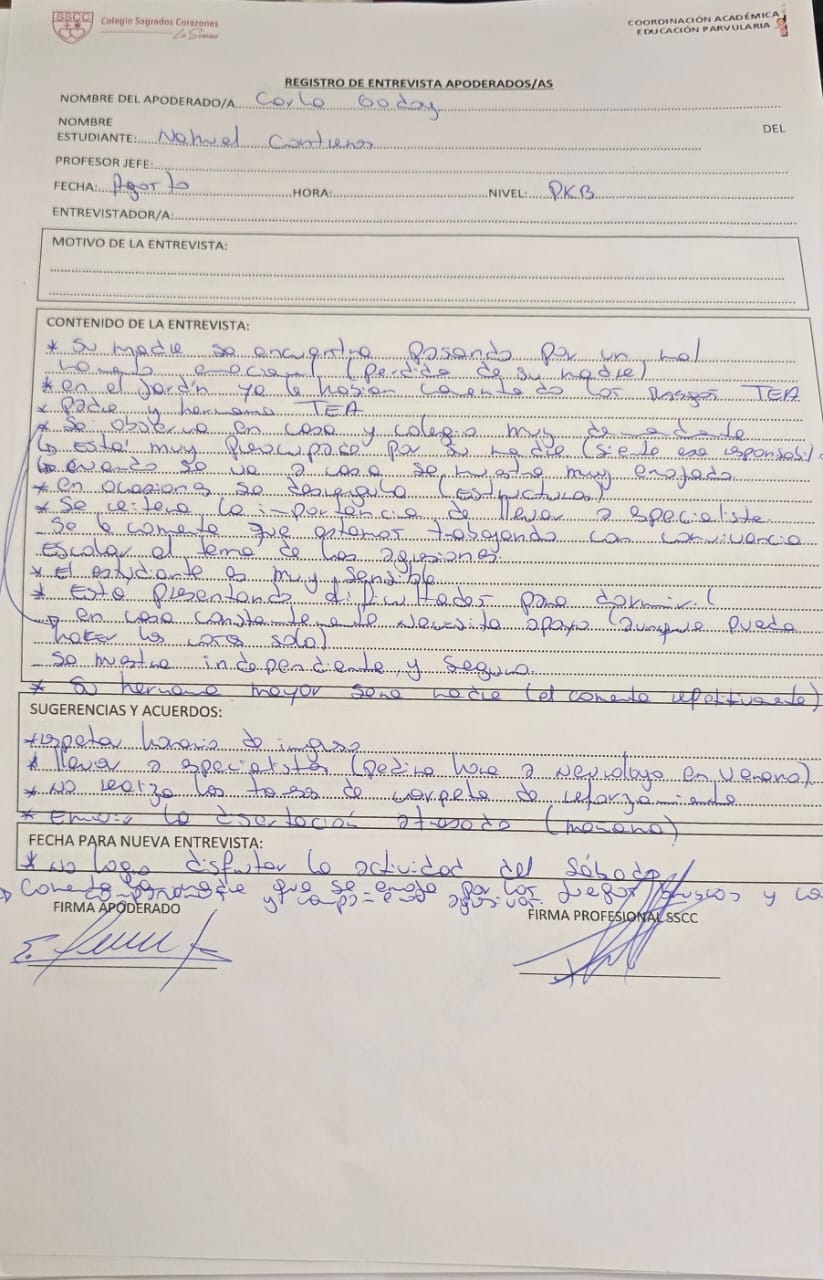 SSCC
Colegio Sagrados Corazones
La Serena
COORDINACIÓN ACADÉMICA
EDUCACIÓN PARVULARIA
REGISTRO DE ENTREVISTA APODERADOS/AS
NOMBRE DEL APODERADO/A Carla Godoy
NOMBRE DEL
ESTUDIANTE: Nahuel Contreras
PROFESOR JEFE:
FECHA: Agosto HORA: NIVEL: PKB
ENTREVISTADOR/A:
MOTIVO DE LA ENTREVISTA:
CONTENIDO DE LA ENTREVISTA:
* Su madre se encuentra pasando por un mal
momento emocional (perdida de su madre)
* en el jardín ya le habían comentado los rasgos TEA
* Padre y hermano TEA
* Se observa en casa y colegio muy demandante
Está muy preocupado por su madre (siente esa responsabil
cuando se va a casa se muestra muy enojado
* en ocasiones se desregula (Estructuras)
* Se reitera la importancia de llevar a especialista
Se le comenta que estamos trabajando con convivencia
Escolar el tema de las agresiones.
* El estudiante es muy sensible
* Esta presentando dificultades para dormir. (
en casa constantemente necesita apoyo (aunque pueda
hacer las cosas solo)
Se muestra independiente y segura.
* Su hermano mayor sera madre (el comenta repetitivamente)
SUGERENCIAS Y ACUERDOS:
* respetar horario de ingreso
* llevar a especialista (pedira hora a neurologo en verano)
* No realiza las tareas de carpeta de reforzamiento
* Enviar la disertación atrasada (mañana)
FECHA PARA NUEVA ENTREVISTA:
* No logo disfrutar la actividad del Sábado
Comenta que se enojo por los juegos bruscos y
FIRMA APODERADO
FIRMA PROFESIONAL SSCC